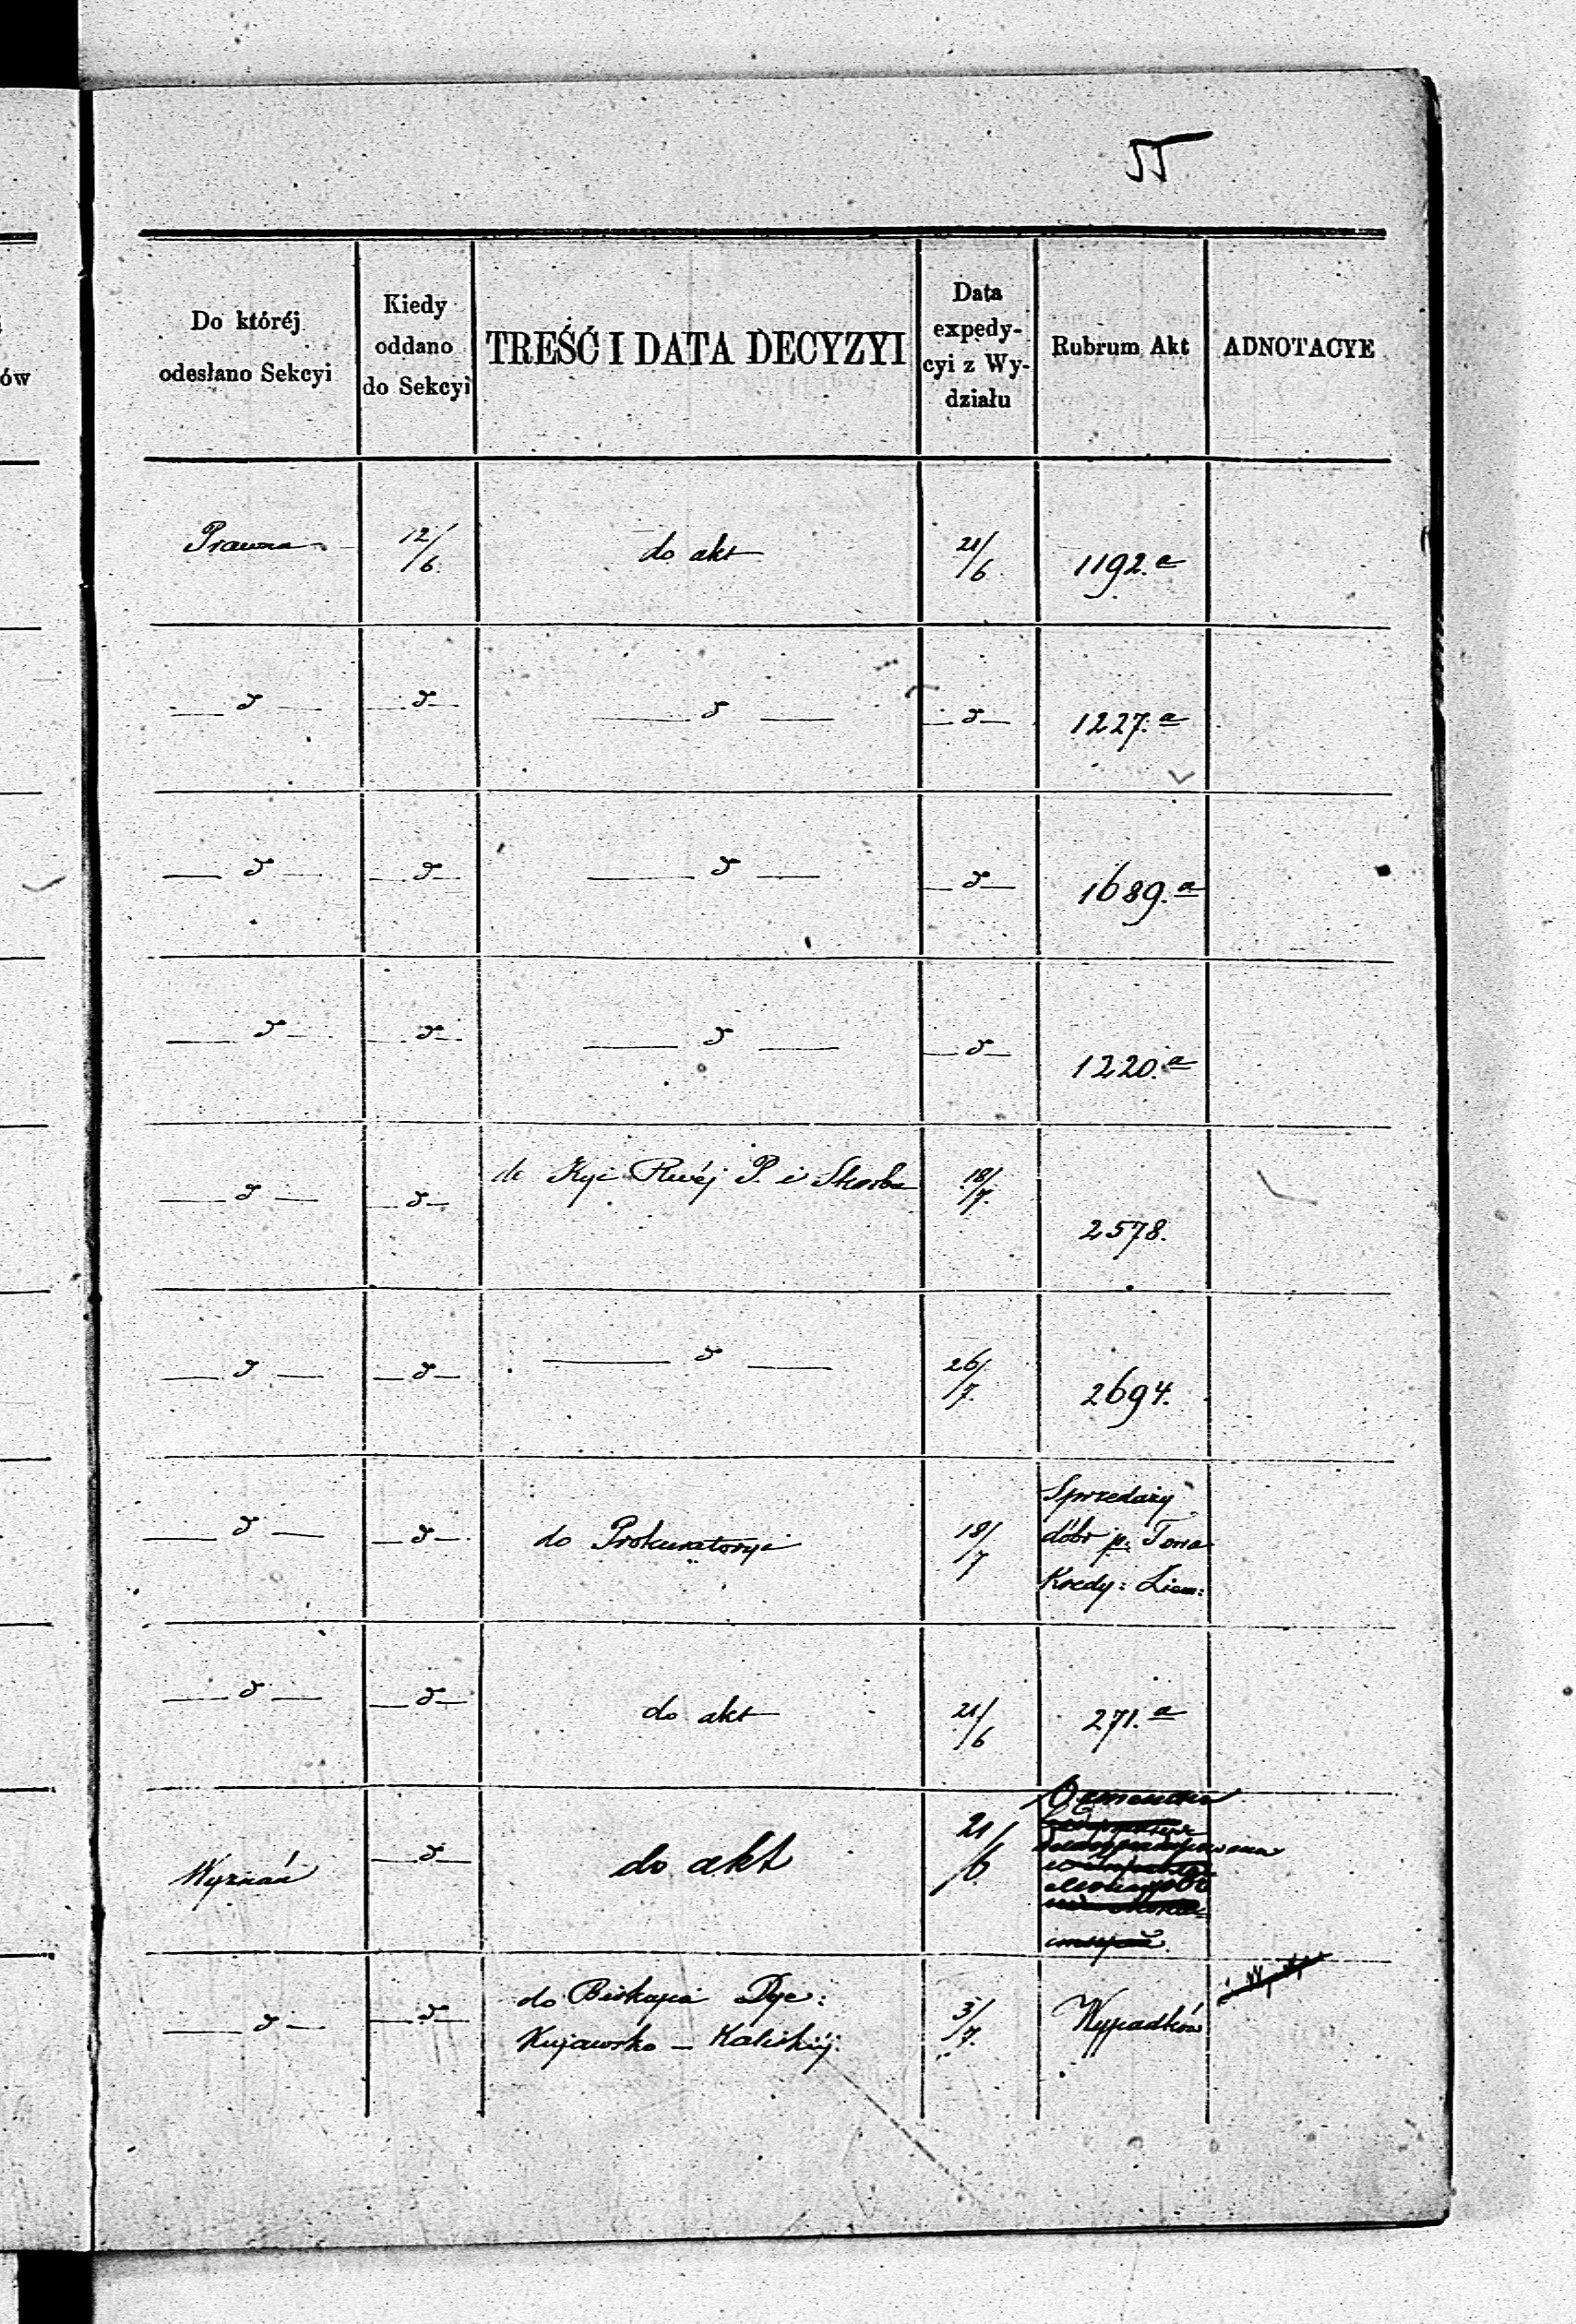 55
Do któréj
odesłano Sekcyi
Kiedy
oddano
do Sekcyi
TREŚĆ I DATA DECYZYI
Data
expedy-
cyi z Wy-
działu
Rubrum Akt
ADNOTACYE
ów
Prawna 12/6. do akt 21/6. 1192.a
— d — — d — — d — — d — 1227.a
— d — — d — — d — — d — 1689.a
— d — — d — — d — — d — 1220.a
— d — — d — do Kyi Rwéj P. i Skarbu 18/7. 2578.
— d — — d — — d — 26/7. 2694.
— d — — d — do Prokuratoryi 18/7
Sprzedaży
dóbr p. Towa
Kredy: Ziem:
— d — — d — do akt 21/6 271.a
Wyznań — d — do akt 21/6.
— d — — d — do Biskupa Dye:
Kujawsko – Kaliskiéj.
3/7.
Wypadków